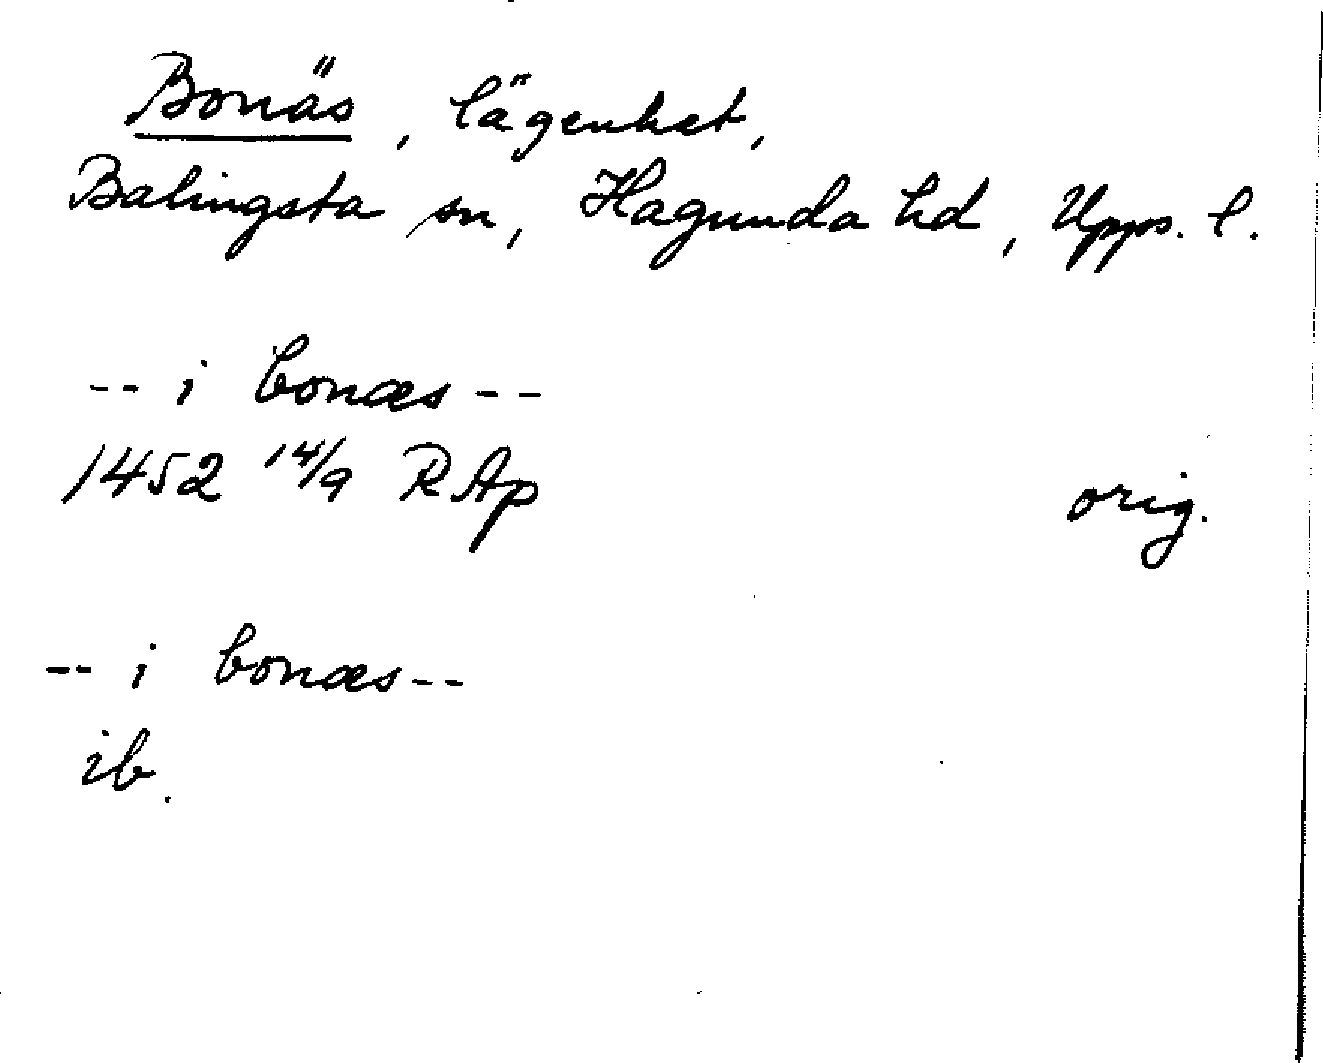 Bonäs, lägenhet,
Balingsta sn, Hagunda hd, Upps. l.
-- i bonæs --
1452 14/9 RAp orig.
-- i bonæs --
ib.